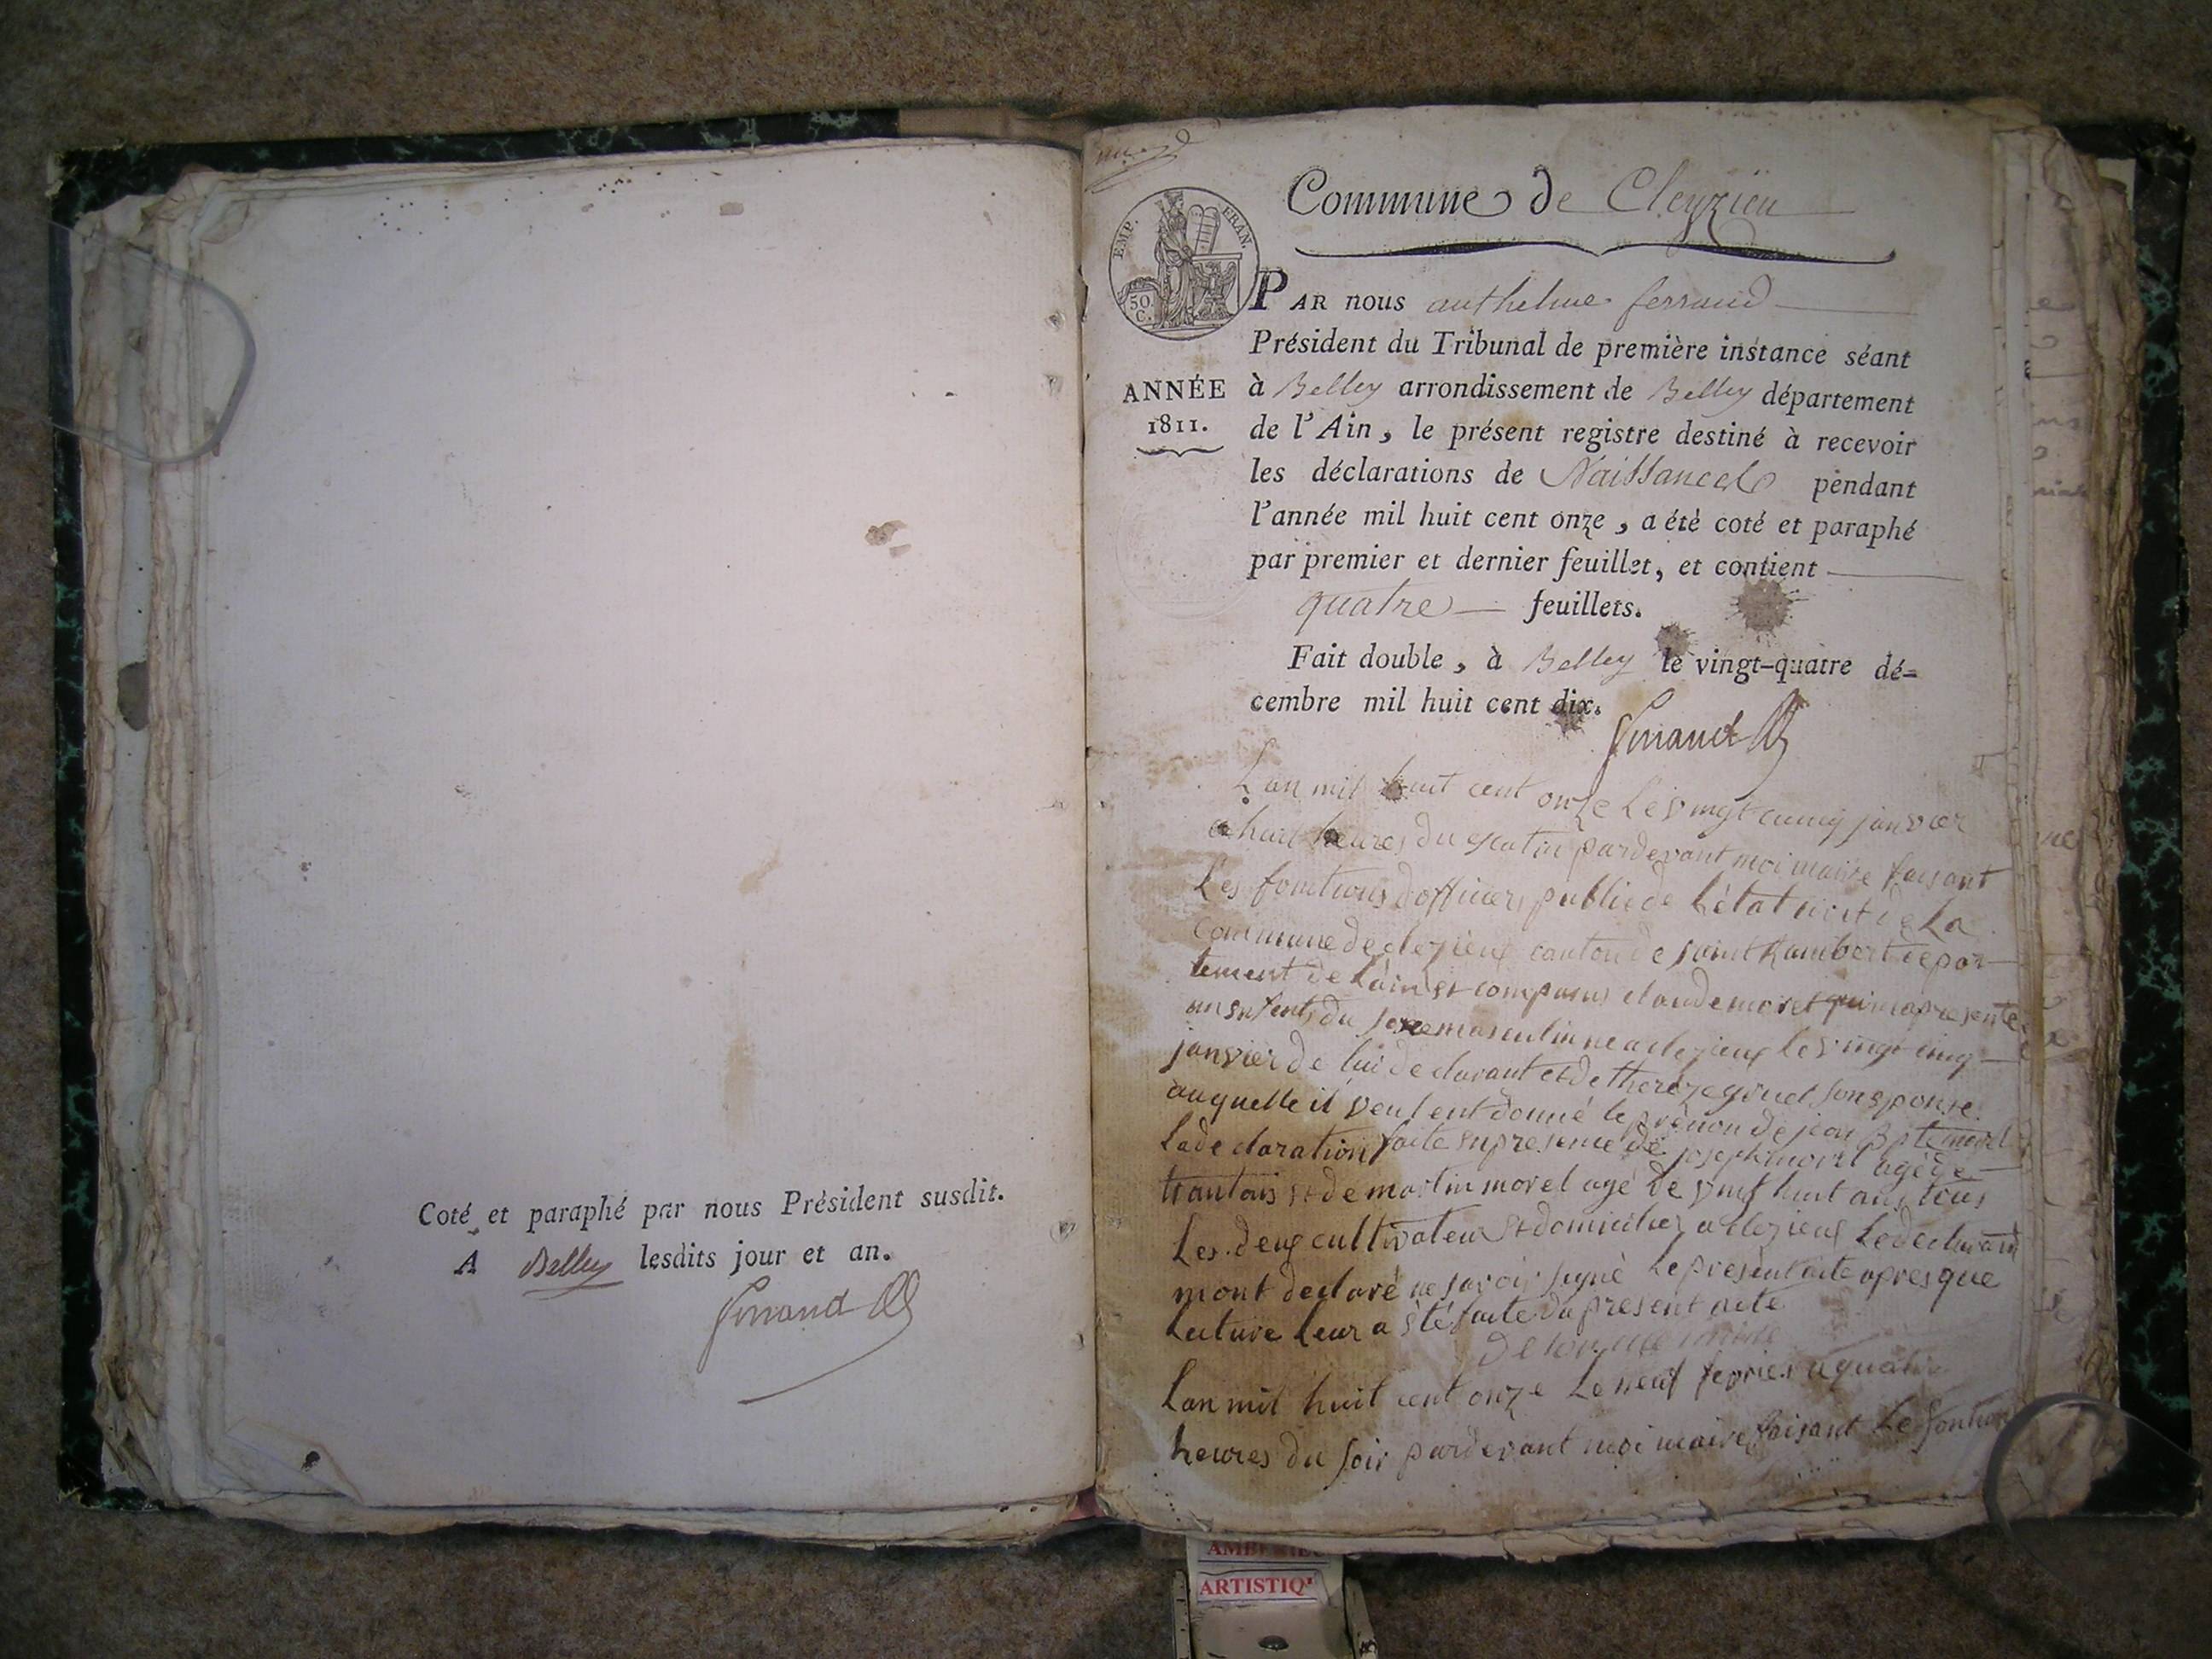 Coté et paraphé par nous Président susdit.
A Belley lesdits jour et an.
Ferrand
Commune de Cleyzieu
EMP. FRAN.
50. C.
PAR nous anthelme ferrand
Président du Tribunal de première instance séant
à Belley arrondissement de Belley département
ANNÉE
1811.
de l'Ain, le présent registre destiné à recevoir
les déclarations de Naissances pendant
l'année mil huit cent onze, a été coté et paraphé
par premier et dernier feuillet, et contient
quatre feuillets.
Fait double, à Belley le vingt-quatre dé=
cembre mil huit cent dix.
Ferrand
Lan mil huit cent onze Le vingt cinq janvier
a huit heures du matin pardevant moi maire faisant
Les fonctions dofficiers public de Létat civil de La
commune de clezieux canton de saint Rambert depar-
tement de Lain est comparus claude morel qui ma presenté
un enfent du sexe masculin ne a clezieux Le vingt cinq
janvier de lui declarant et de thereze son eponse
auquelle il veul ent donné le prénon de jean Bpte morel
La declaration faite en presence de joseph morel agé de
trantois et de martin morel agé de vint huit ans tous
Les deux cultivateur et domicilies a clezieux Le declarant
mont declaré ne savoir signé Le present acte apres que
Lecture Leur a été faite du present acte
maire
Lan mil huit cent onze Le neuf fevrier a quatre
heures du soir pardevant moi maire faisant Le fontion
AMBERIEU
ARTISTIQ